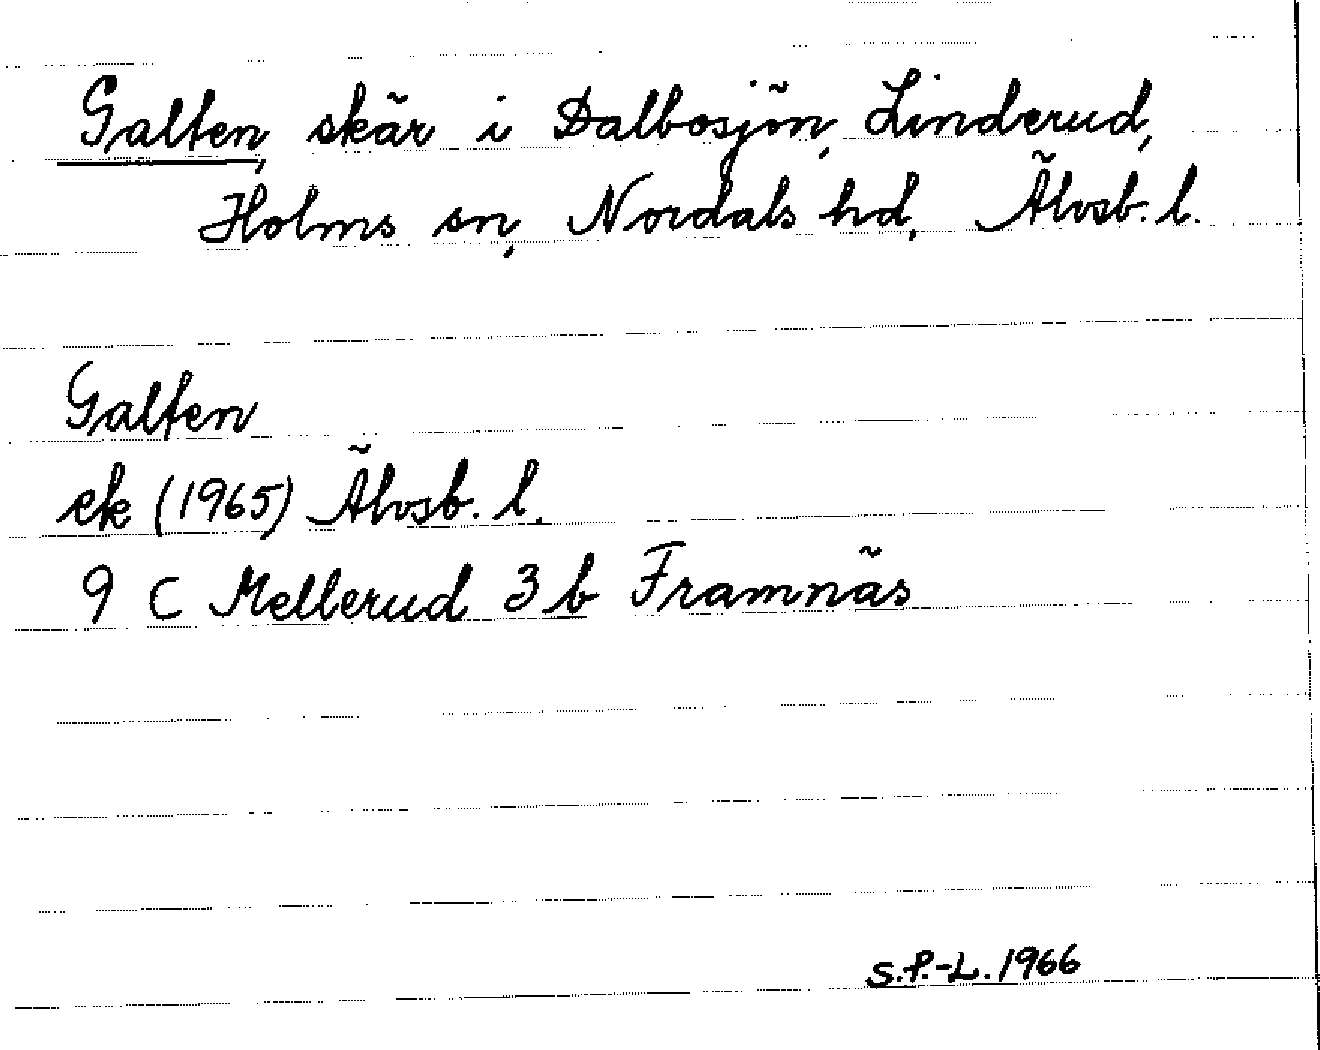 Galten, skär i Dalbosjön, Linderud,
Holms sn, Nordals hd, Älvsb. l.
Galten
ek (1965) Älvsb. l.
9 C Mellerud 3 b Framnäs
S.P.-L. 1966